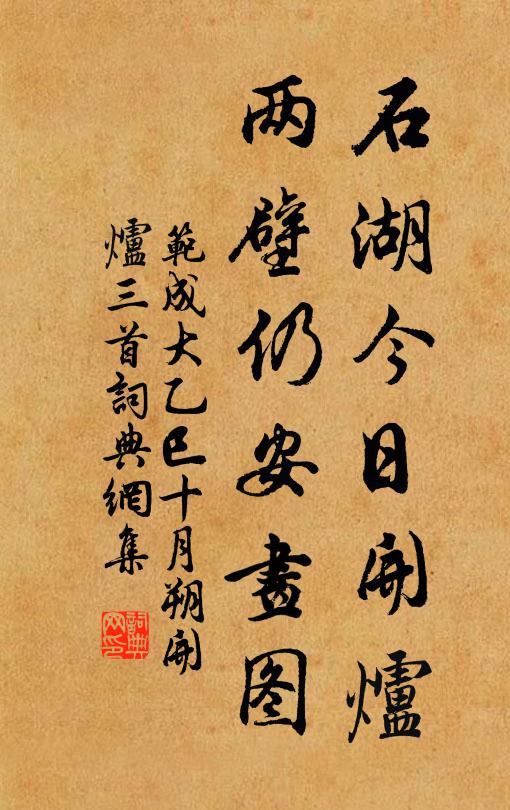 石湖今日開爐
两壁仍安畫图
範成大乙巳十月朔開
爐三首詞典網集
詞典
网印